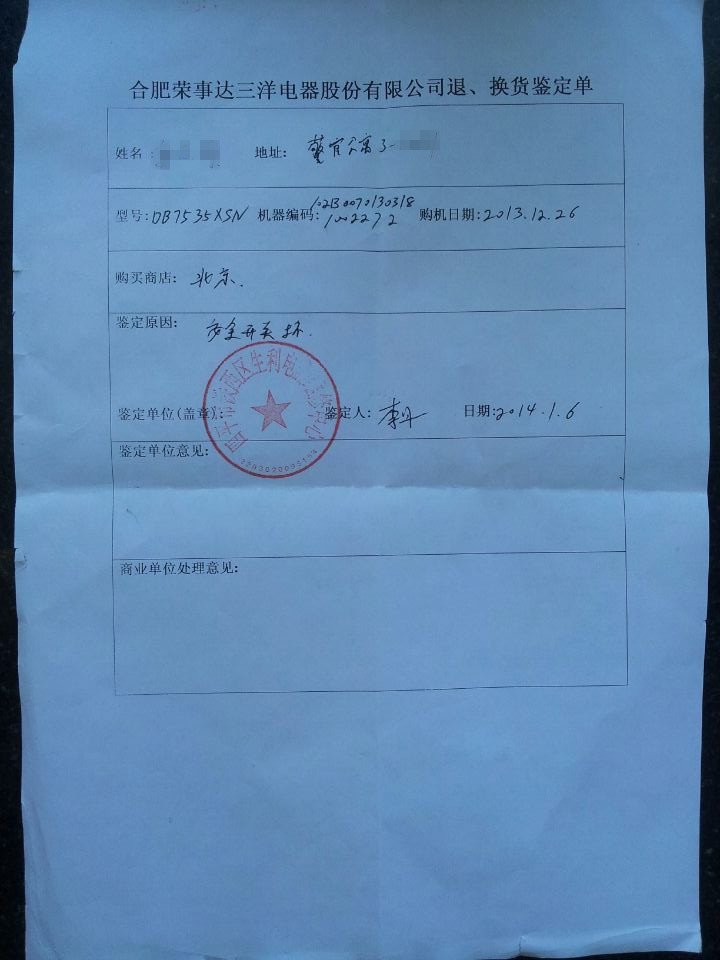 合肥荣事达三洋电器股份有限公司退、换货鉴定单
姓名: 地址: 警官公寓3-
型号:DB7535XSN 机器编码:102B0070130318 1002272 购机日期:2013.12.26
购买商店: 北京.
鉴定原因: 安全开关坏.
鉴定单位(盖章): 鉴定人: 日期:2014.1.6
鉴定单位意见:
商业单位处理意见: